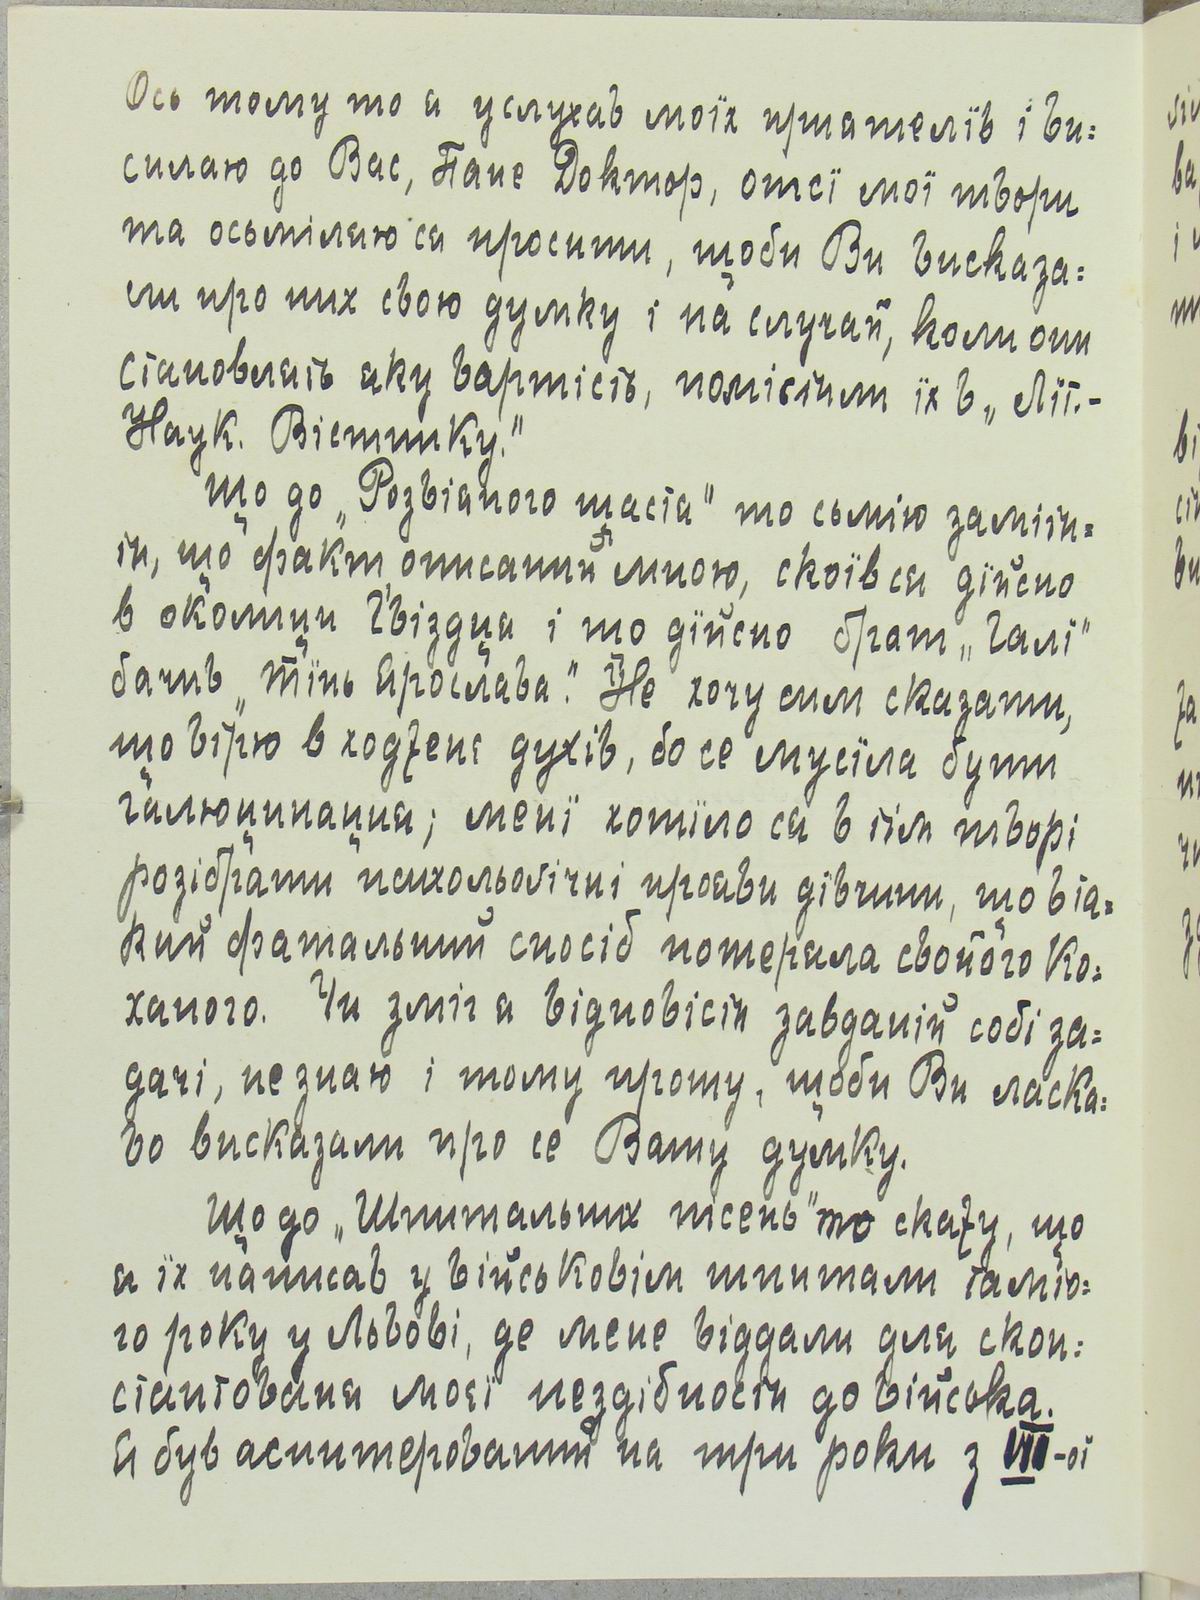 Ось тому то я услухав моїх приятелїв і ви=
силаю до Вас, Пане Доктор, отсї мої твори
та осьміляю ся просити, щоби Ви висказа=
ли про них свою думку і на случай, коли они
становлять яку вартість, помістили їх в „Лїт.-
Наук. Вістнику."
Що до „Розвіяного щастя" то сьмію заміти=
ти, що факт, описаний мною, скоїв ся дїйсно
в околици Гвіздця і що дїйсно брат „Галї"
бачив „тїнь Ярослава." Не хочу сим сказати,
що вірю в ходженє духів, бо се мусїла бути
галюцинация; менї хотїло ся в тім творі
розібрати психольоґічні прояви дівчини, що в та=
кий фатальний спосіб потеряла свойого ко=
ханого. Чи зміг я відповісти завданій собі за=
дачі, не знаю і тому прошу, щоби Ви ласка=
во висказали про се Вашу думку.
Що до „Шпитальних пісень" то скажу, що
я їх написав у військовім шпитали тамто=
го року у Львові, де мене віддали для скон=
статованя моєї нездібности до війська.
Я був асентерований на три роки з VIII-ої